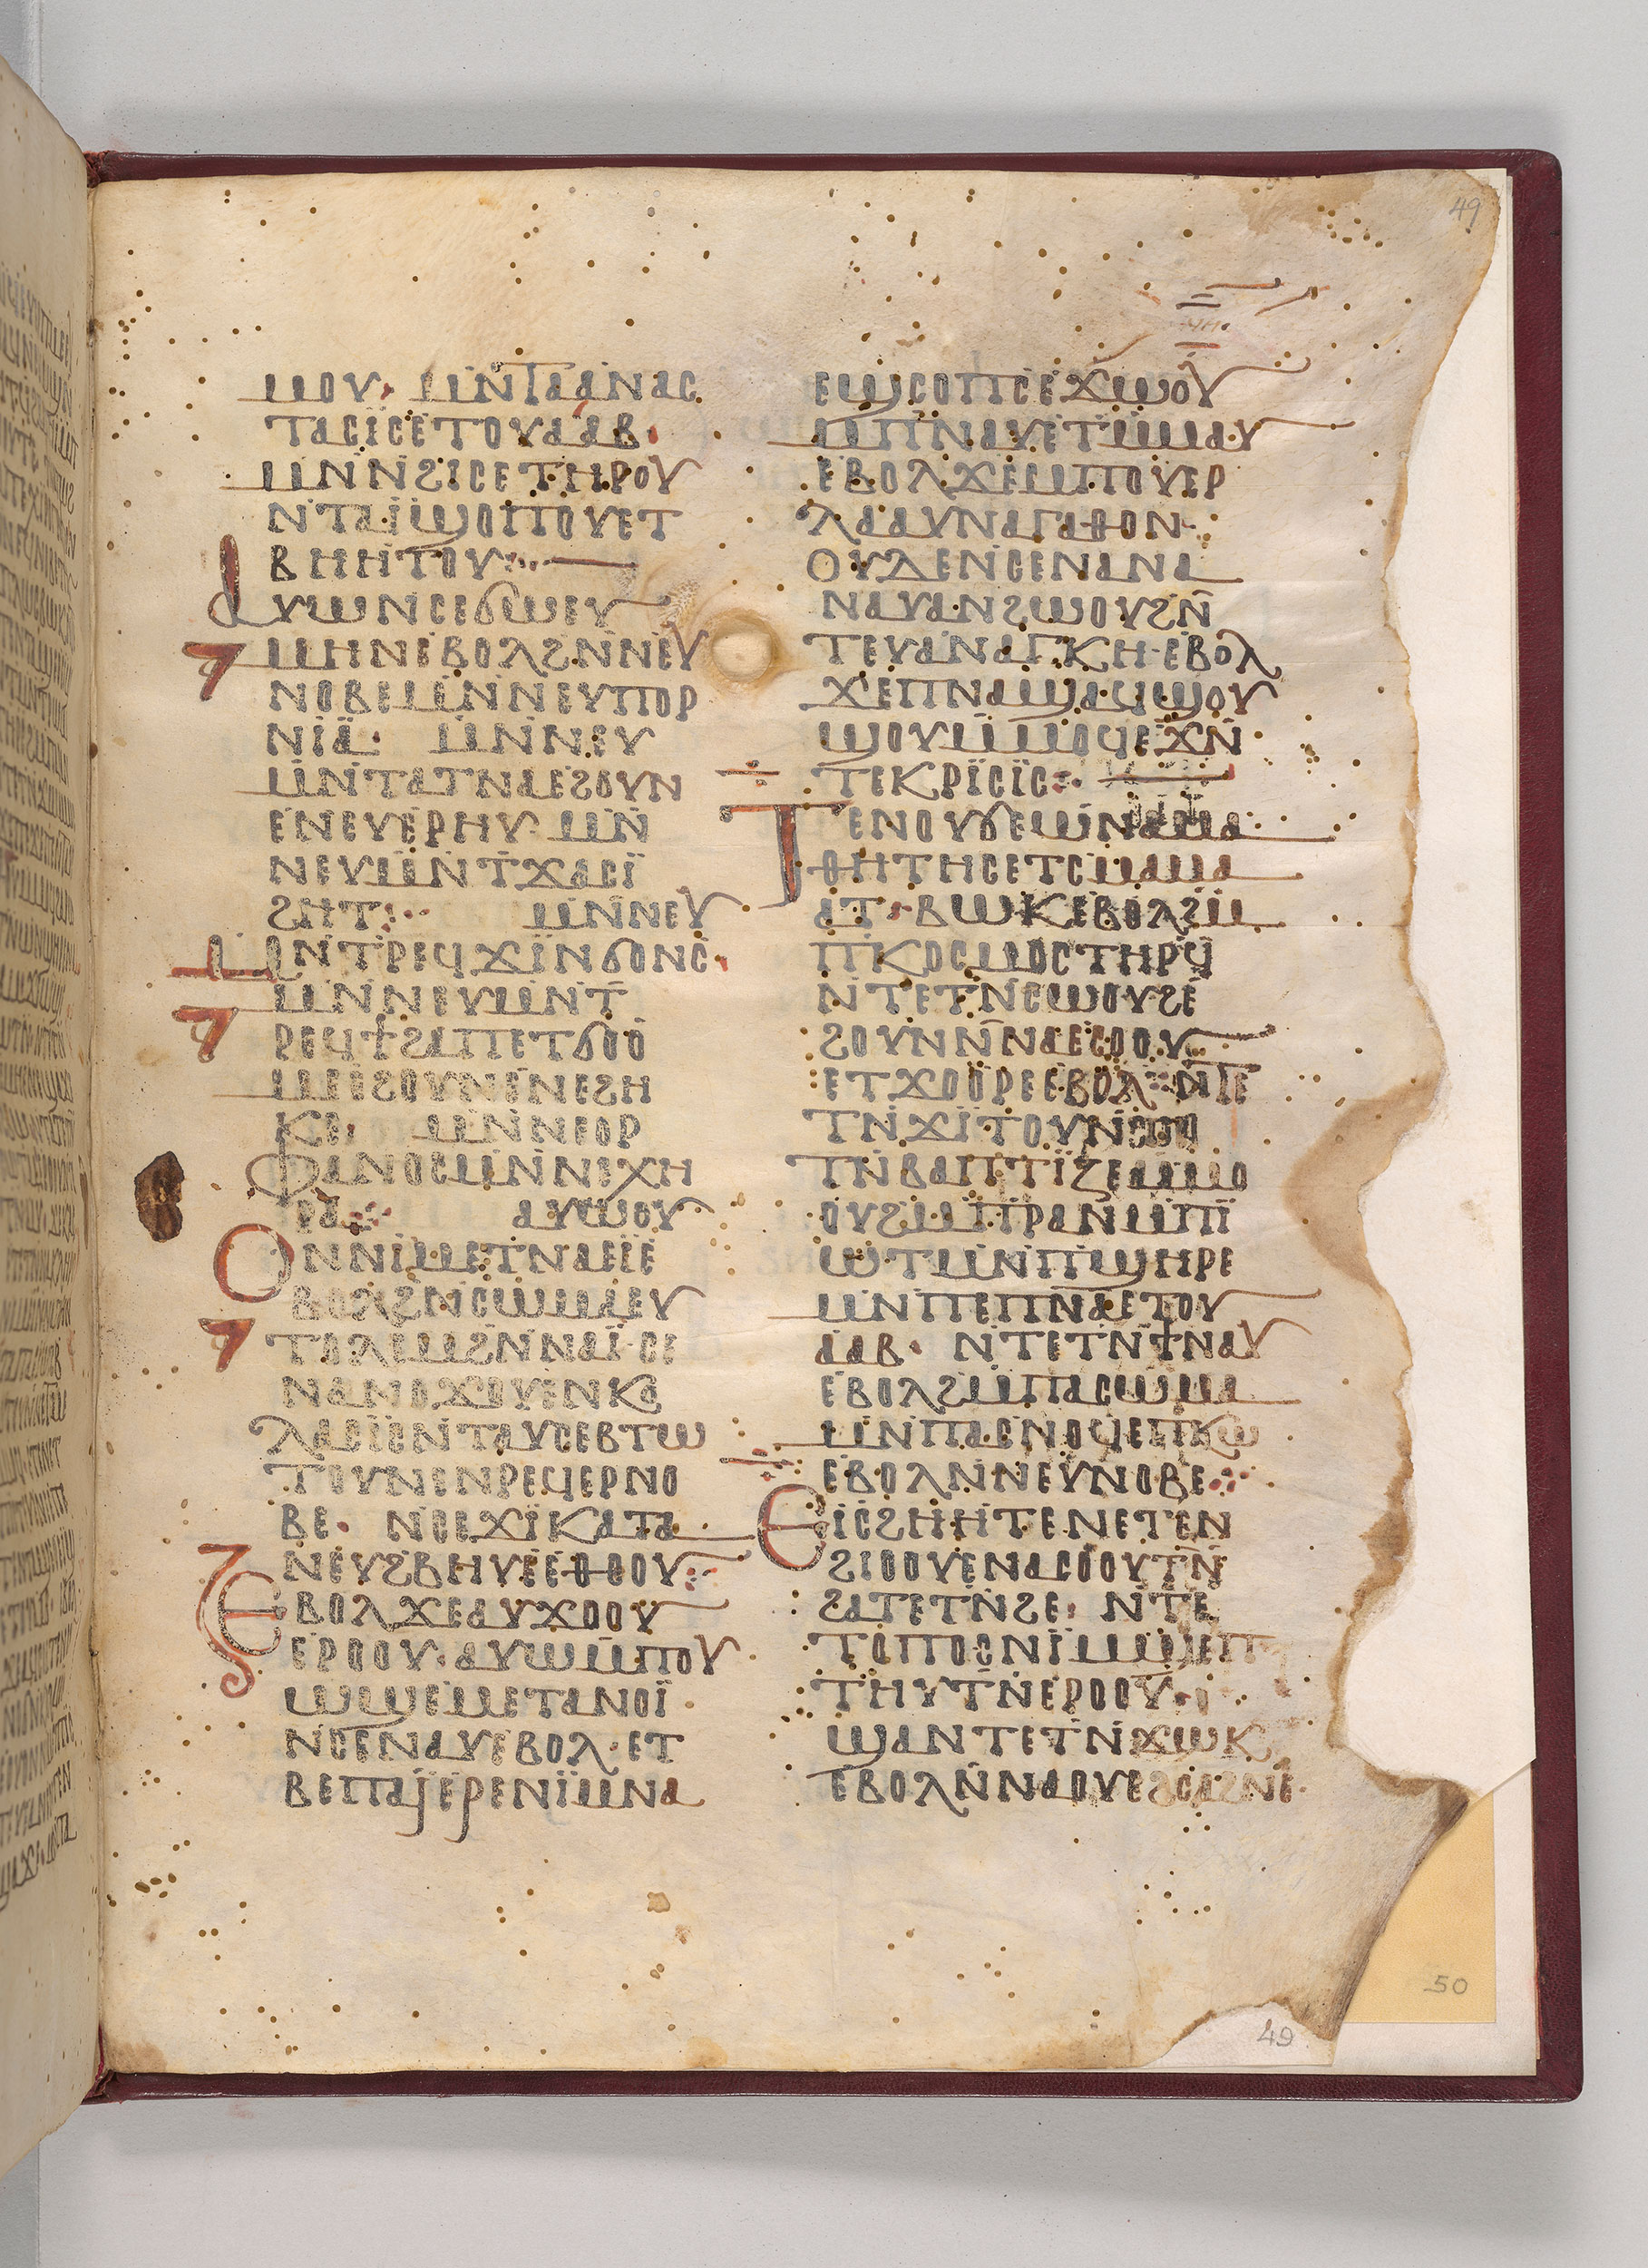 49
ⲙⲟⲩ· ⲙⲛⲧⲁⲁⲛⲁⲥ
ⲧⲁⲥⲓⲥⲉⲧⲟⲩⲁⲁⲃ·
ⲙⲛⲛϩⲓⲥⲉⲧⲏⲣⲟⲩ
ⲛⲧⲁⲓ̈ϣⲟⲡⲟⲩⲉⲧ
ⲃⲏⲏⲧⲟⲩ:
ⲁⲩⲱⲛⲥⲉϭⲱⲉⲩ
ⲙⲏⲛⲉⲃⲟⲗϩⲛⲛⲉⲩ
ⲛⲟⲃⲉⲙⲛⲛⲉⲩⲡⲟⲣ
ⲛⲓⲁ· ⲙⲛⲛⲉⲩ
ⲙⲛⲧⲁⲧⲛⲁⲉϩⲟⲩⲛ
ⲉⲛⲉⲩⲉⲣⲏⲩ· ⲙⲛ
ⲛⲉⲩⲙⲛⲧϫⲁⲥⲓ
ϩⲏⲧ: ⲙⲛⲛⲉⲩ
ⲙⲛⲧⲣⲉϥϫⲓⲛϭⲟⲛⲥ·
ⲙⲛⲛⲉⲩⲙⲛⲧ
ⲣⲉϥϯϩⲁⲡⲉⲧϭⲟⲟ
ⲙⲉⲉϩⲟⲩⲛⲉⲛⲉϩⲏ
ⲕⲉ· ⲙⲛⲛⲉⲟⲣ
ⲫⲁⲛⲟⲥⲙⲛⲛⲉⲭⲏ
ⲣⲁ: ⲁⲩⲱⲟⲩ
ⲟⲛⲛⲓⲙⲉⲧⲛⲁⲉⲓⲉ
ⲃⲟⲗϩⲛⲥⲱⲙⲁⲉⲩ
ⲧⲟⲗⲉⲙϩⲛⲛⲁⲓ̈·ⲥⲉ
ⲛⲁⲛⲟϫⲟⲩⲉⲛⲕⲟ
ⲗⲁⲥⲓⲥⲛⲧⲁⲩⲥⲉⲃⲧⲱ
ⲧⲟⲩⲛⲉⲛⲣⲉϥⲉⲣⲛⲟ
ⲃⲉ· ⲛⲥⲉϫⲓⲕⲁⲧⲁ
ⲛⲉⲩϩⲃⲏⲩⲉⲉⲑⲟⲟⲩ:
ⲉⲃⲟⲗϫⲉⲁⲩϫⲟⲟⲩ
ⲉⲣⲟⲟⲩ·ⲁⲩⲱⲙⲡⲟⲩ
ⲱϣⲉⲙⲉⲧⲁⲛⲟⲓ̈
ⲛⲥⲉⲛⲁⲩⲉⲃⲟⲗ·ⲉⲧ
ⲃⲉⲡⲁϳⲉⲣⲉⲛⲓ̈ⲙⲛⲁ
ⲉϣⲥⲟⲡⲥⲉϫⲱⲟⲩ
ⲙⲡⲛⲁⲩⲉⲧⲙⲙⲁⲩ
ⲉⲃⲟⲗϫⲉⲙⲡⲟⲩⲉⲣ
ⲗⲁⲁⲩⲛⲁⲅⲁⲑⲟⲛ·
ⲟⲩⲇⲉⲛⲥⲉⲛⲁⲛⲁ
ⲛⲁⲩⲁⲛϩⲱⲟⲩϩⲛ
ⲧⲉⲩⲁⲛⲁⲅⲕⲏ·ⲉⲃⲟⲗ
ϫⲉⲡⲛⲁϣⲁϥϣⲟⲩ
ϣⲟⲩⲙⲙⲟϥⲉϫⲛ
ⲧⲉⲕⲣⲓ̈ⲥⲓ̈ⲥ:
ⲧⲉⲛⲟⲩϭⲉⲱⲛⲁⲙⲁ
ⲑⲏⲧⲏⲥⲉⲧⲥⲙⲁⲙⲁ
ⲁⲧ·ⲃⲱⲕⲉⲃⲟⲗϩⲙ
ⲡⲕⲟⲥⲙⲟⲥⲧⲏⲣϥ
ⲛⲧⲉⲧⲛⲥⲱⲟⲩϩⲉ
ϩⲟⲩⲛⲛⲛⲁⲉⲥⲟⲟⲩ
ⲉⲧϫⲟⲟⲣⲉⲉⲃⲟⲗ·ⲛⲧⲉ
ⲧⲛϫⲓⲧⲟⲩⲛ
ⲧⲛⲃⲁⲡⲧⲓ̈ⲍⲉⲙⲙⲟ
ⲟⲩϩⲙⲡⲣⲁⲛⲙⲡⲓ̈
ⲱⲧⲙⲛⲡϣⲏⲣⲉ
ⲙⲛⲡⲉⲡⲛⲁⲉⲧⲟⲩ
ⲁⲁⲃ· ⲛⲧⲉⲧⲛϯⲛⲁⲩ
ⲉⲃⲟⲗϩⲙⲡⲁⲥⲱⲙⲁ
ⲙⲛⲡⲁⲥⲛⲟϥⲉⲡⲕⲱ
ⲉⲃⲟⲗⲛⲛⲉⲩⲛⲟⲃⲉ:
ⲉⲓⲥϩⲏⲏⲧⲉⲛⲉⲧⲉⲛ
ϩⲓⲟⲟⲩⲉⲛⲁⲥⲟⲟⲩⲧⲛ
ϩⲁⲧⲉⲧⲛϩⲉ· ⲛⲧⲉ
ⲧⲟⲡⲟⲥⲛⲓⲙϣⲉⲡ
ⲧⲏⲩⲧⲛⲉⲣⲟⲟⲩ·
ϣⲁⲛⲧⲉⲧⲛϫⲱⲕ
ⲉⲃⲟⲗⲛⲛⲁⲟⲩⲉϩⲥⲁϩⲛⲉ·
50
49